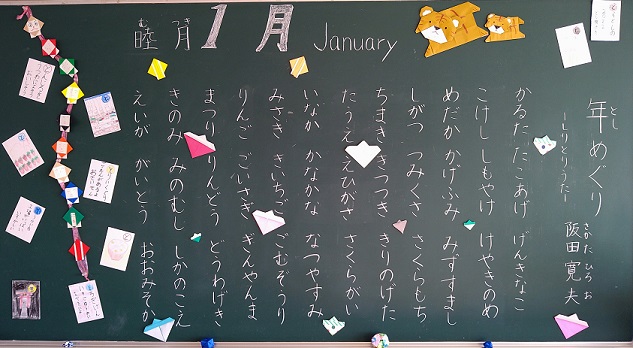 睦月
むつき
1月
January
年めぐり
とし
ーしりとりうたー
阪田寛夫
さかた ひろお
かるた たこあげ げんきなこ
こけし しもやけ けやきのめ
めだか かげふみ みずすまし
しがつ つみくさ さくらもち
ちまき きつつき きりのげた
たうえ えひがさ さくらがい
いなか かなかな なつやすみ
みさき きいちご ごむぞうり
りんご ごいさぎ ぎんやんま
まつり りんどう どうわげき
きのみ みのむし しかのこえ
えいが がいとう おおみそか